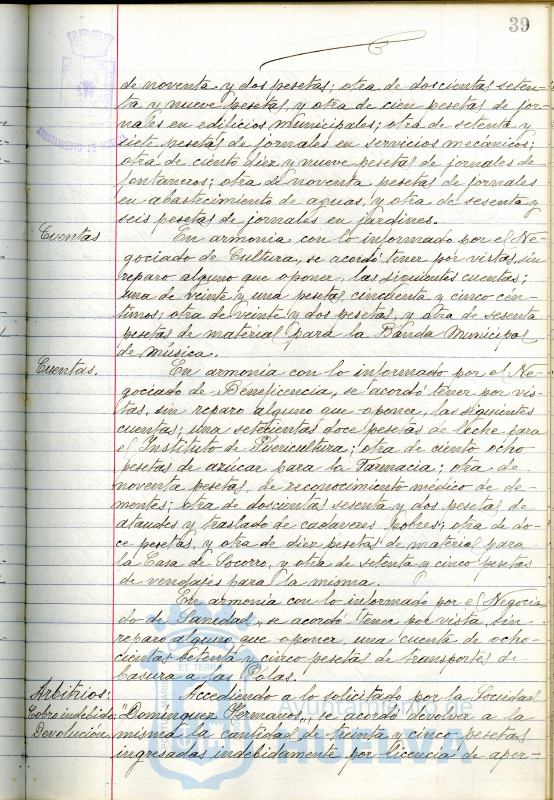 39
de noventa y dos pesetas; otra de doscientas seten-
ta y nueve pesetas, y otra de cien pesetas de jor-
nales en edificios municipales; otra de setenta y
siete pesetas de jornales en servicios mecánicos;
otra de ciento diez y nueve pesetas de jornales de
fontaneros; otra de noventa pesetas de jornales
en abastecimiento de aguas, y otra de sesenta y
seis pesetas de jornales en jardines.
Cuentas
En armonía con lo informado por el Ne-
gociado de Cultura, se acordó tener por vistas, sin
reparo alguno que oponer, las siguientes cuentas;
una de veinte y una pesetas cincuenta y cinco cén-
timos; otra de veinte y dos pesetas, y otra de sesenta
pesetas de material para la Banda Municipal
de música.
Cuentas.
En armonía con lo informado por el Ne-
gociado de Beneficencia, se acordó tener por vis-
tas, sin reparo alguno que oponer, las siguientes
cuentas; una setecientas doce pesetas de leche para
el Instituto de Puericultura; otra de ciento ocho
pesetas de azúcar para la Farmacia; otra de
noventa pesetas, de reconocimiento médico de de-
mentes; otra de doscientas sesenta y dos pesetas de
ataudes y traslado de cadaveres pobres; otra de do-
ce pesetas, y otra de diez pesetas de material para
la Casa de Socorro, y otra de setenta y cinco pesetas
de vendajes para la misma.
En armonía con lo informado por el Negocia-
do de Sanidad, se acordó tener por vista, sin
reparo alguno que oponer, una cuenta de ocho-
cientas setenta y cinco pesetas de transportes de
basura a las Polas.
Arbitrios:
Cobro indebido
Devolución.
Accediendo a lo solicitado por la Sociedad
"Dominguez Hermanos", se acordó devolver a la
misma la cantidad de treinta y cinco pesetas
ingresadas indebidamente por licencia de aper-
AYUNTAMIENTO DE HUELVA
Ayuntamiento de
HUELVA